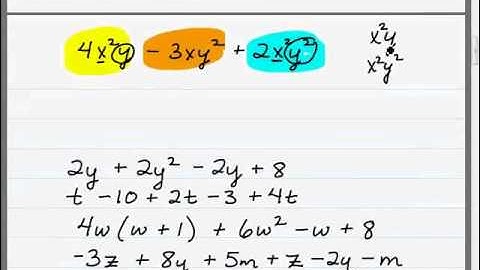 4x²y − 3xy² + 2x²y²
x²y
x²y²
2y + 2y² − 2y + 8
t − 10 + 2t − 3 + 4t
4w(w + 1) + 6w² − w + 8
−3z + 8y + 5m + z − 2y − m